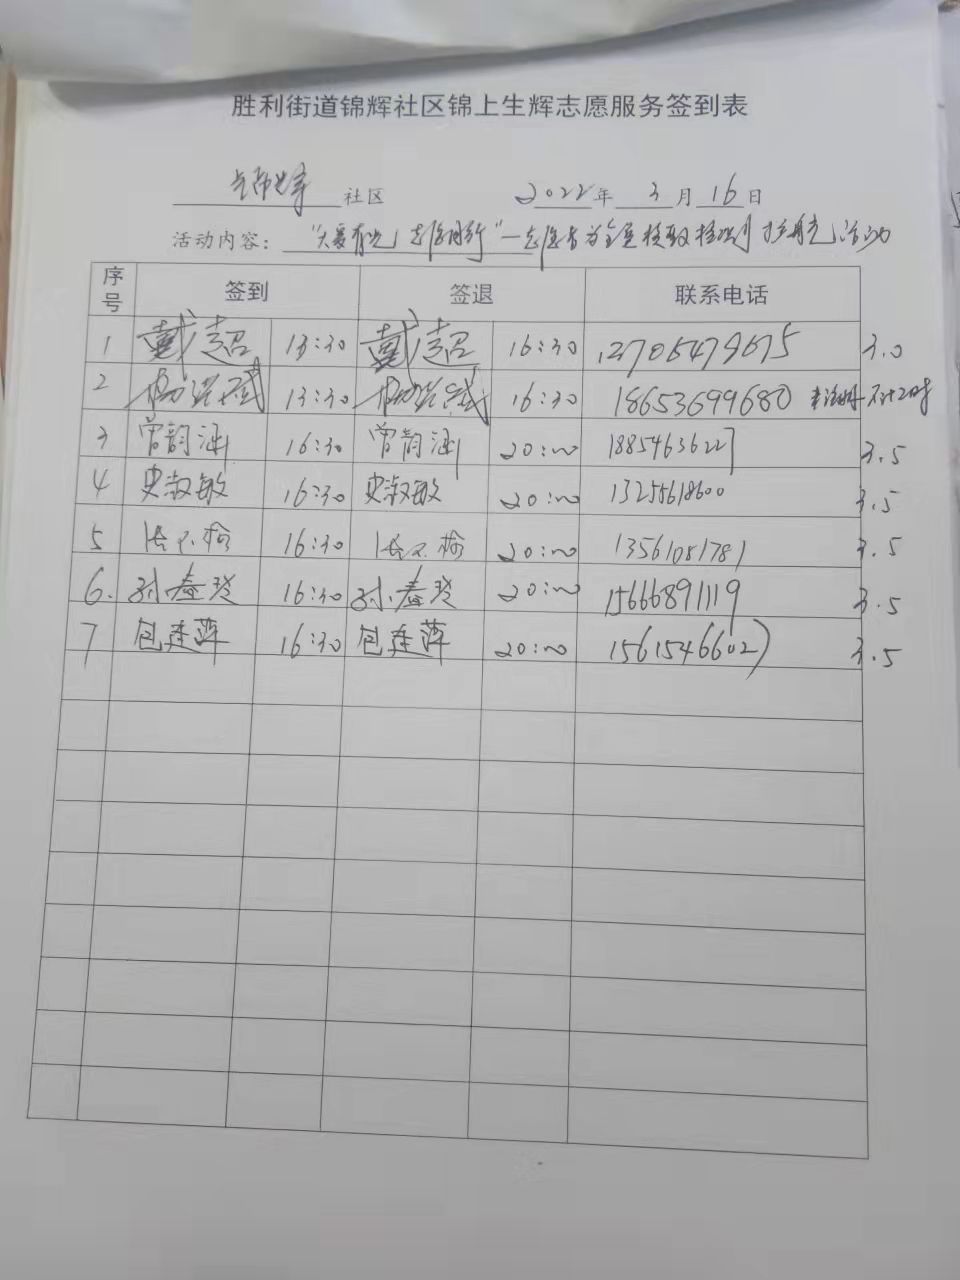 胜利街道锦辉社区锦上生辉志愿服务签到表
社区 2022年 3月16日
活动内容：“大爱有光，志愿同行”—志愿者为全员核酸检测护航活动
序号 签到 签退 联系电话
1 戴超 13:30 戴超 16:30 3.0
2 13:30 16:30 18653699680 未注册 不计工时
3 曾韵涵 16:30 曾韵涵 20:00 18854636227 3.5
4 史淑敏 16:30 史淑敏 20:00 13255618600 3.5
5 16:30 20:00 13561081781 3.5
6. 孙春玲 16:30 孙春玲 20:00 15666891119 3.5
7 包建萍 16:30 包建萍 20:00 15615466027 3.5